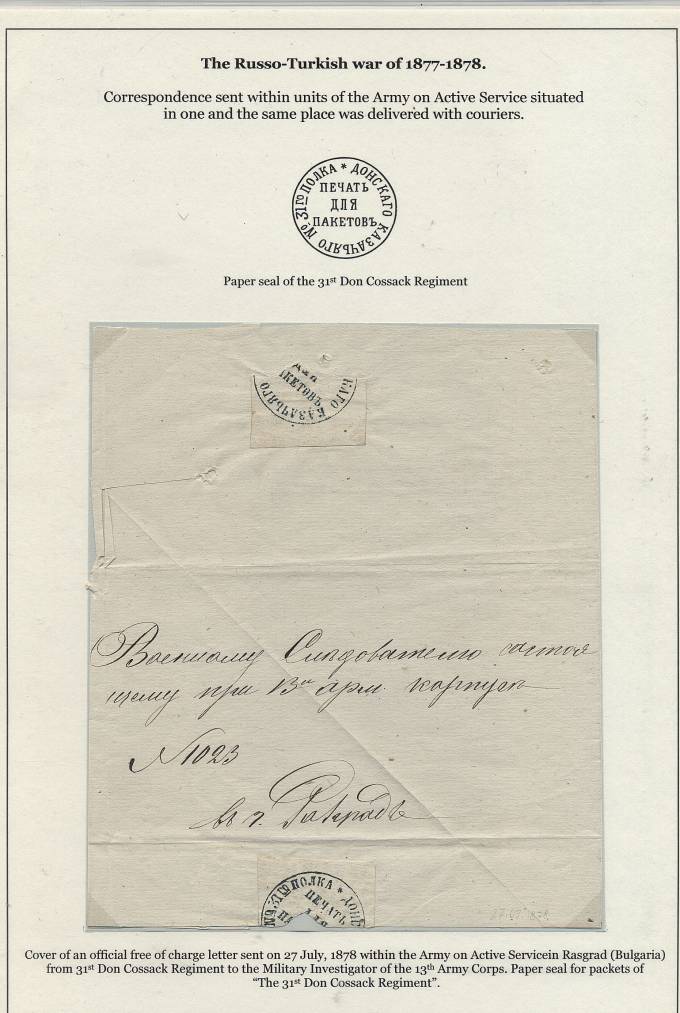 The Russo-Turkish war of 1877-1878.
Correspondence sent within units of the Army on Active Service situated
in one and the same place was delivered with couriers.
ДОНСКАГО КАЗАЧЬЯГО №31ГО ПОЛКА *
ПЕЧАТЬ
ДЛЯ
ПАКЕТОВЪ
Paper seal of the 31st Don Cossack Regiment
ДЛЯ
КЕТОВЪ
КАГО КАЗАЧЬЯГО
Военному Слѣдователю состоя
щему при 13м арм. корпусѣ
№1023
въ г. Разградѣ
№31ГО ПОЛКА * ДОН
ПЕЧАТЬ
27.07.1878
Cover of an official free of charge letter sent on 27 July, 1878 within the Army on Active Servicein Rasgrad (Bulgaria)
from 31st Don Cossack Regiment to the Military Investigator of the 13th Army Corps. Paper seal for packets of
"The 31st Don Cossack Regiment".